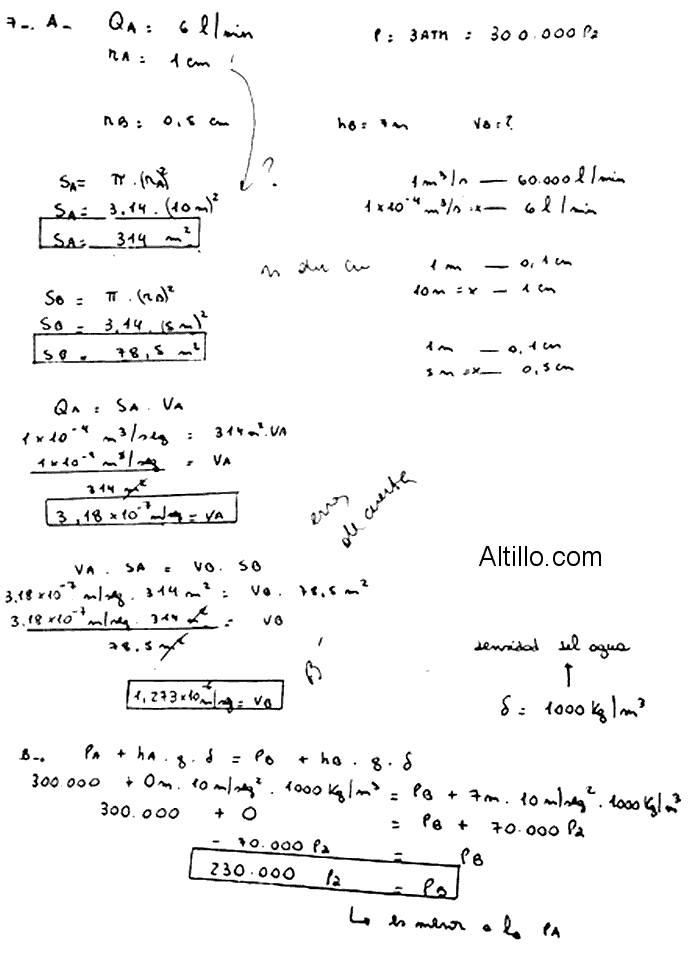 7-. A- QA = 6 l/min
P = 3ATM = 300.000 Pa
rA = 1 cm
rB = 0,5 cm hB = 7m VB = ?
?
SA = π . (rA)²
SA = 3,14 . (10m)²
SA = 314 m²
1 m³/s — 60.000 l/min
1x10⁻⁴ m³/s = x — 6 l/min
1 m — 0,1 cm
10m = x — 1 cm
SB = π . (rB)²
SB = 3,14 . (5m)²
SB = 78,5 m²
1m — 0,1 cm
5m = x — 0,5 cm
QA = SA . VA
1x10⁻⁴ m³/seg = 314 m² . VA
1x10⁻⁴ m³/seg = VA
314 m²
3,18x10⁻⁷ m/seg = VA
error
de cuenta
Altillo.com
VA . SA = VB . SB
3,18x10⁻⁷ m/seg . 314 m² = VB . 78,5 m²
3,18x10⁻⁷ m/seg . 314 m² = VB
78,5 m²
1,273x10⁻⁶ m/seg = VB
B
densidad del agua
↑
δ = 1000 Kg/m³
B-. PA + hA . g . δ = PB + hB . g . δ
300.000 + 0m . 10 m/seg² . 1000 Kg/m³ = PB + 7m . 10 m/seg² . 1000 Kg/m³
300.000 + 0 = PB + 70.000 Pa
- 70.000 Pa = PB
230.000 Pa = PB
↳ es menor a la PA